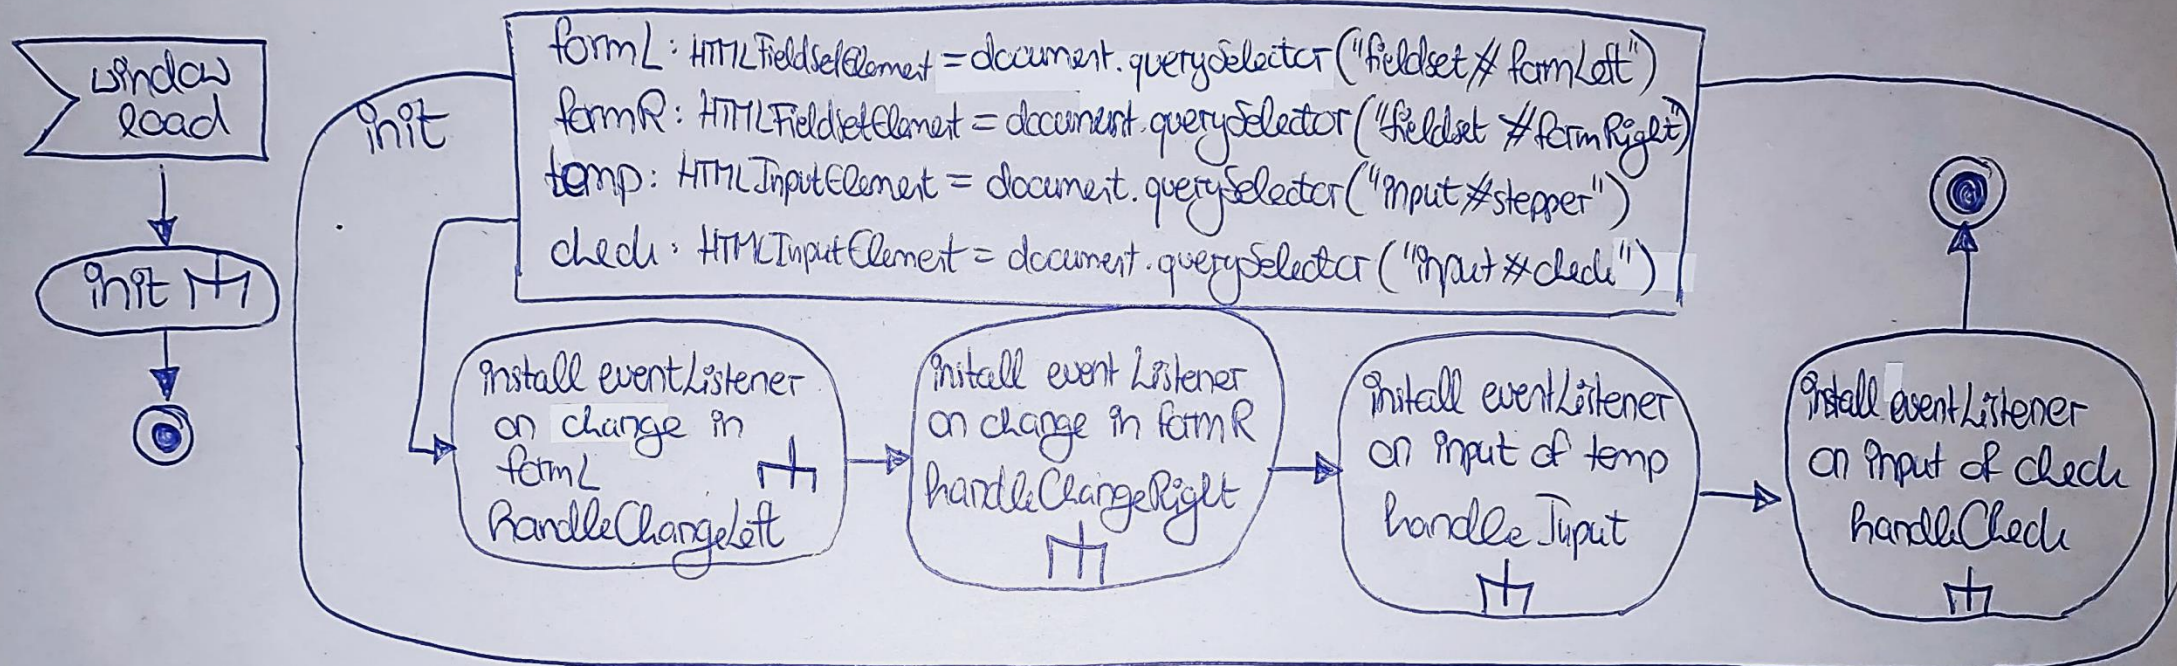 window
load
init
init
formL: HTMLFieldSetElement = document.querySelector("fieldset#formLeft")
formR: HTMLFieldSetElement = document.querySelector("fieldset #formRight")
temp: HTMLInputElement = document.querySelector("input#stepper")
check: HTMLInputElement = document.querySelector("input#check")
install eventListener
on change in
formL
handleChangeLeft
install event Listener
on change in formR
handleChangeRight
install eventListener
on input of temp
handleInput
install eventListener
on input of check
handleCheck